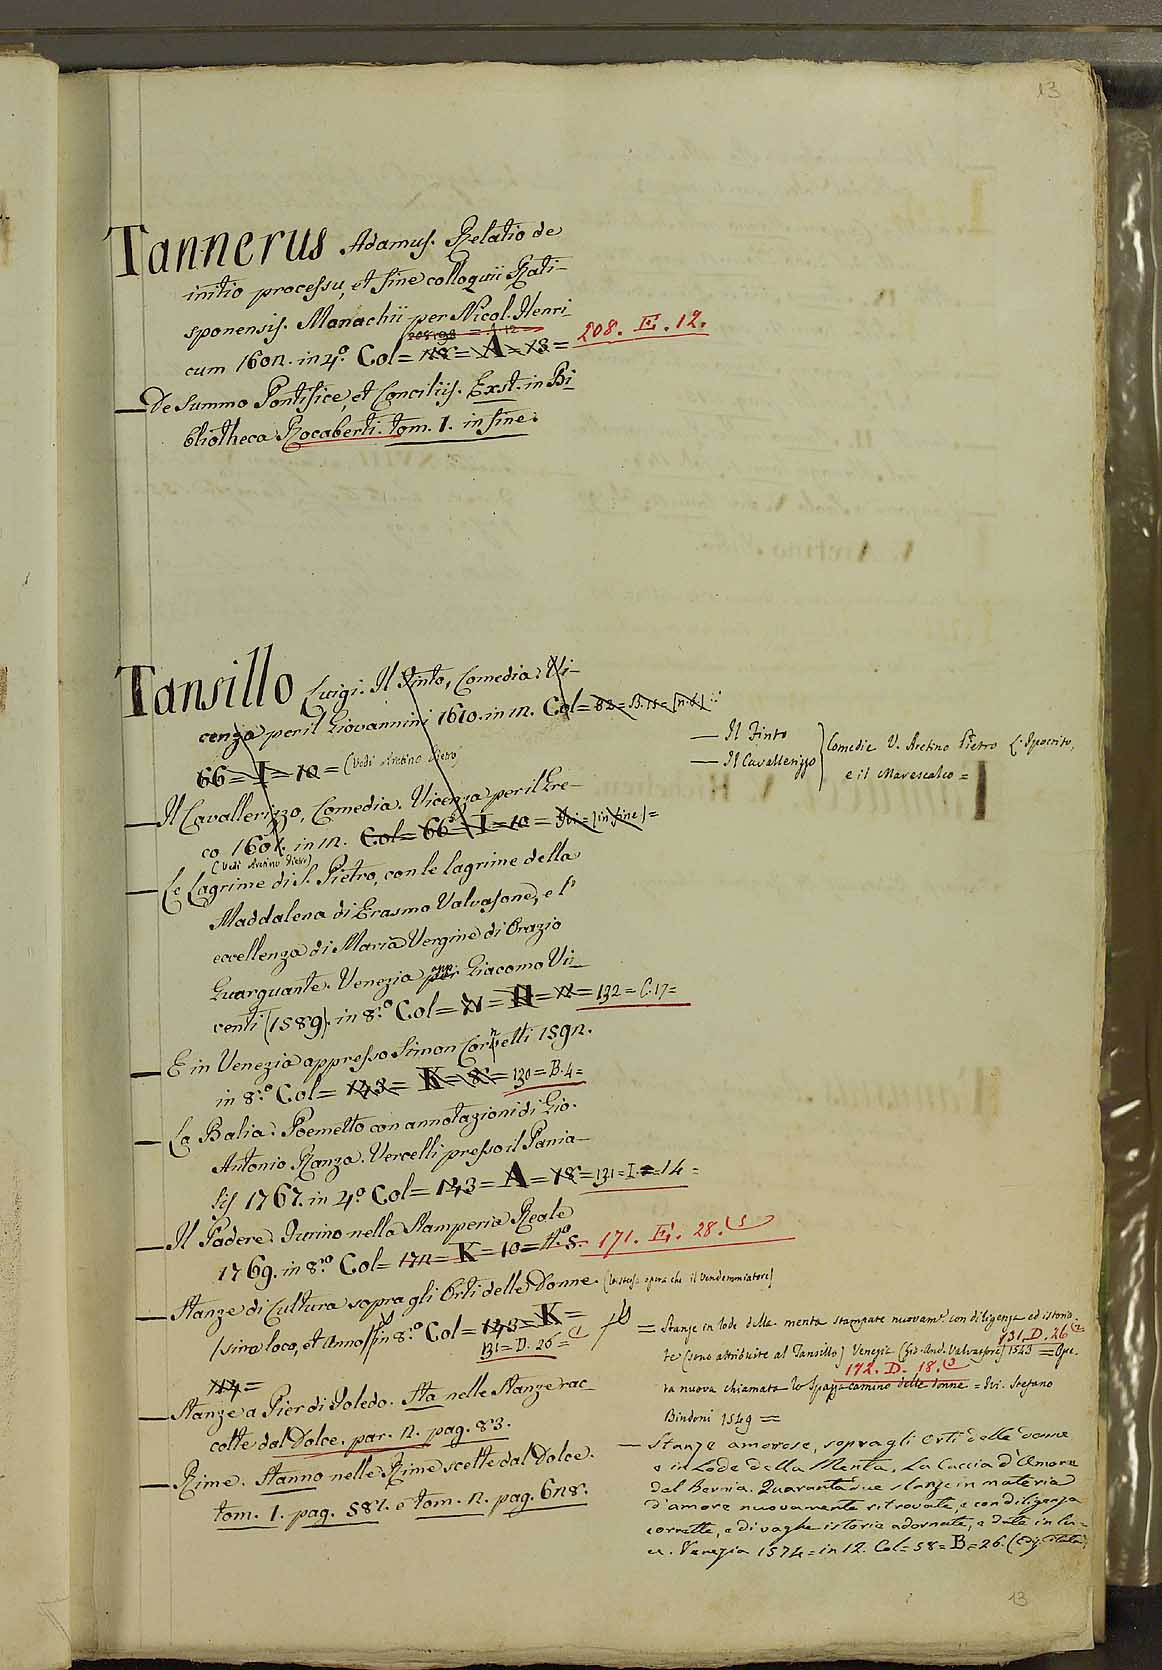 13
Tannerus Adamus. Relatio de
initio processu, et fine colloquii Rati-
sponensis. Monachii per Nicol. Henri
cum 1602. in 4.º Col= 118 = A = 18 = 208. E. 12.
— De Summo Pontifice, et Conciliis. Exst. in Bi
bliotheca Rocaberti. tom. 1. in fine.
Tansillo Luigi. Il Finto, Comedia. Vi-
cenza per il Giovannini 1610. in 12. Col=
66 = I = 10 = (Vedi Aretino Pietro)
— Il Finto
— Il Cavallerizzo
Comedie V. Aretino Pietro L'Ipocrito,
e il Marescalco =
— Il Cavallerizzo, Comedia. Vicenza per il Gre-
co 1601. in 12. Col= 66 = I = 10 = Ivi = (in fine) =
(Vedi Aretino Pietro)
— Le Lagrime di S. Pietro, con le lagrime della
Maddalena di Erasmo Valvasone, e l'
eccellenza di Maria Vergine di Orazio
Guarguante. Venezia app. Giacomo Vi-
centi (1589). in 8.º Col= = 132 = C. 17 =
— E in Venezia appresso Simon Cornetti 1592.
in 8.º Col= 143 = K = 8 = 130 = B. 4 =
— La Balia. Poemetto con annotazioni di Gio.
Antonio Ranza. Vercelli presso il Pania-
sis 1767. in 4.º Col= 143 = A = 18 = 131 = I. = 14 =
— Il Podere. Turino nella Stamperia Reale
1769. in 8.º Col= 172 = K = 10 = 171. E. 28.
— Stanze di Cultura sopra gli Orti delle Donne. (l'istess' opera che il Vendemmiatore)
(sine loco, et anno) in 8.º Col= 143 = K =
131 = D. 26 =
114 =
— Stanze a Pier di Toledo. Sta nelle Stanze rac-
colte dal Dolce. par. 2. pag. 83.
— Rime. Stanno nelle Rime scelte dal Dolce.
tom. 1. pag. 581. e tom. 2. pag. 628.
= Stanze in lode della menta stampate nuovam.e con diligenza ed istoria-
131. D. 26
te (sono attribuite al Tansillo) Venezia 1543 = Ope-
172. D. 18.
ra nuova chiamata lo Spazza-camino delle donne = Ivi. Stefano
Bindoni 1549 =
— Stanze amorose, sopra gli orti delle donne
e in Lode della Menta, La Caccia d'Amore
del Bernia. Quarantadue stanze in materia
d'amore nuovamente ritrovate, e con diligenza
corrette, e di vaghe istorie adornate, e date in lu-
ce. Venezia 1574 = in 12. Col = 58 = B = 26.
13